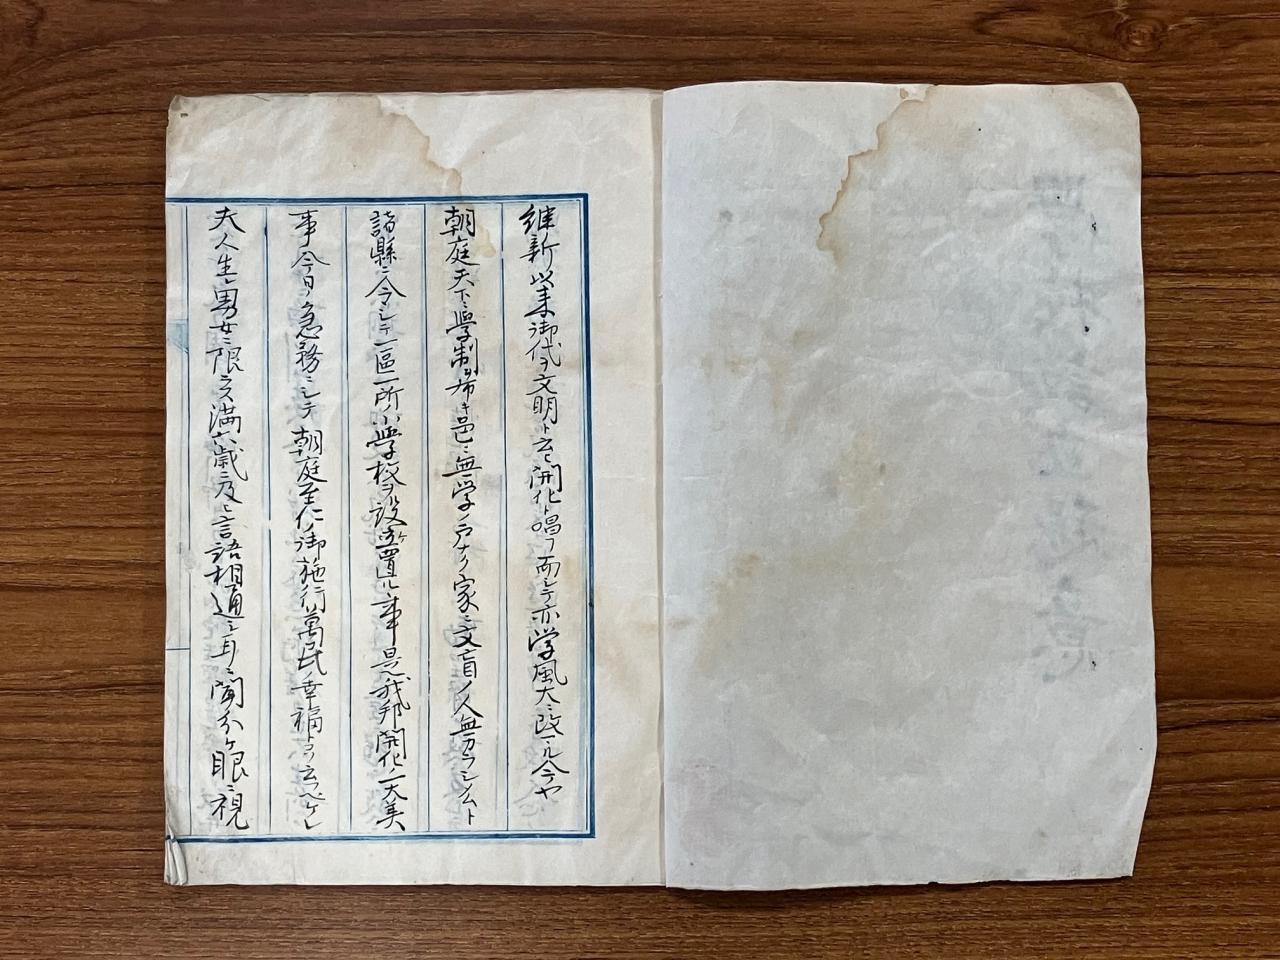 維新以来御代ヲ文明ト云ヒ開化ト唱フ而シテ亦学風大ニ改マル今ヤ
朝庭天下ニ学制ヲ布キ邑ニ無学ノ戸ナク家ニ文盲ノ人無カラシムト
諸縣ニ令シテ一區一所ノ小学校ヲ設ケ置ル事是我邦開化ノ一大美
事今日ノ急務ニシテ朝庭至仁ノ御施行萬民ノ幸福トコソ云フベケレ
夫人生男女ニ限ラス満六歳ニ及ヒ言語相通シ耳ニ聞分ケ眼ニ視